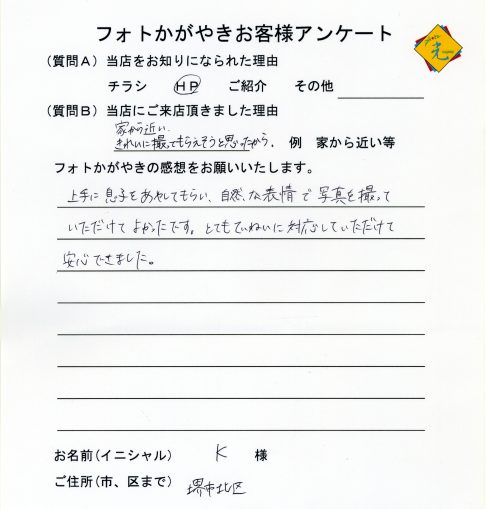 フォトかがやきお客様アンケート
光
(質問A)当店をお知りになられた理由
チラシ HP ご紹介 その他
(質問B)当店にご来店頂きました理由
家から近い.
きれいに撮ってもらえそうと思ったから. 例 家から近い等
フォトかがやきの感想をお願いいたします。
上手に息子をあやしてもらい、自然な表情で写真を撮って
いただけてよかったです。とてもていねいに対応していただけて
安心できました。
お名前(イニシャル) K 様
ご住所(市、区まで) 堺市北区